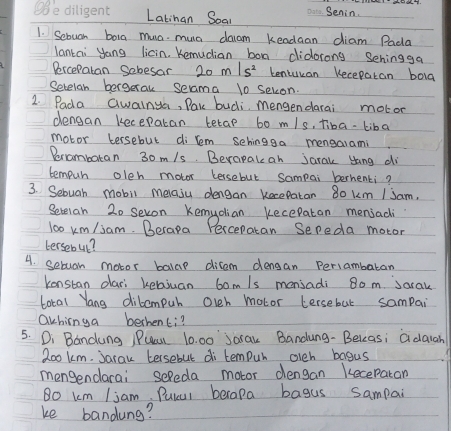 Be diligent
Senin.
Latihan Soal
1. Sebuah bola mula-mula dalam keadaan diam. Pada
lantai yang licin. kemudian bola didorong sehingga
Percepatan Sebesar 20 m/s² tentukan kecepatan bola
Setelah bergerak selama 10 sekon.
2. Pada awalnya, Pak budi mengendarai motor
dengan kecepatan tetap 60 m/s. Tiba-tiba
motor tersebut di rem sehingga mengalami
Perlambatan 30 m/s. Berapakah jarak yang di
tempuh oleh motor tersebut sampai berhenti?
3. Sebuah mobil melaju dengan kecepatan 80 km/jam,
Setelah 20 sekon kemudian kecepatan menjadi
100 km/jam. Berapa Percepatan Sepeda motor
tersebut?
4. Sebuah motor balap direm dengan Perlambatan
konstan dari kelajuan 60 m/s menjadi 80 m. Jarak
total Yang ditempuh oleh motor tersebut sampai
akhirnya berhenti?
5. Di Bandung Pukul 10.00 jarak Bandung-Bekasi adalah
200 km. Jarak tersebut di tempuh oleh bagus
mengendarai sepeda motor dengan kecepatan
80 km/jam. Pukul berapa bagus sampai
ke bandung?